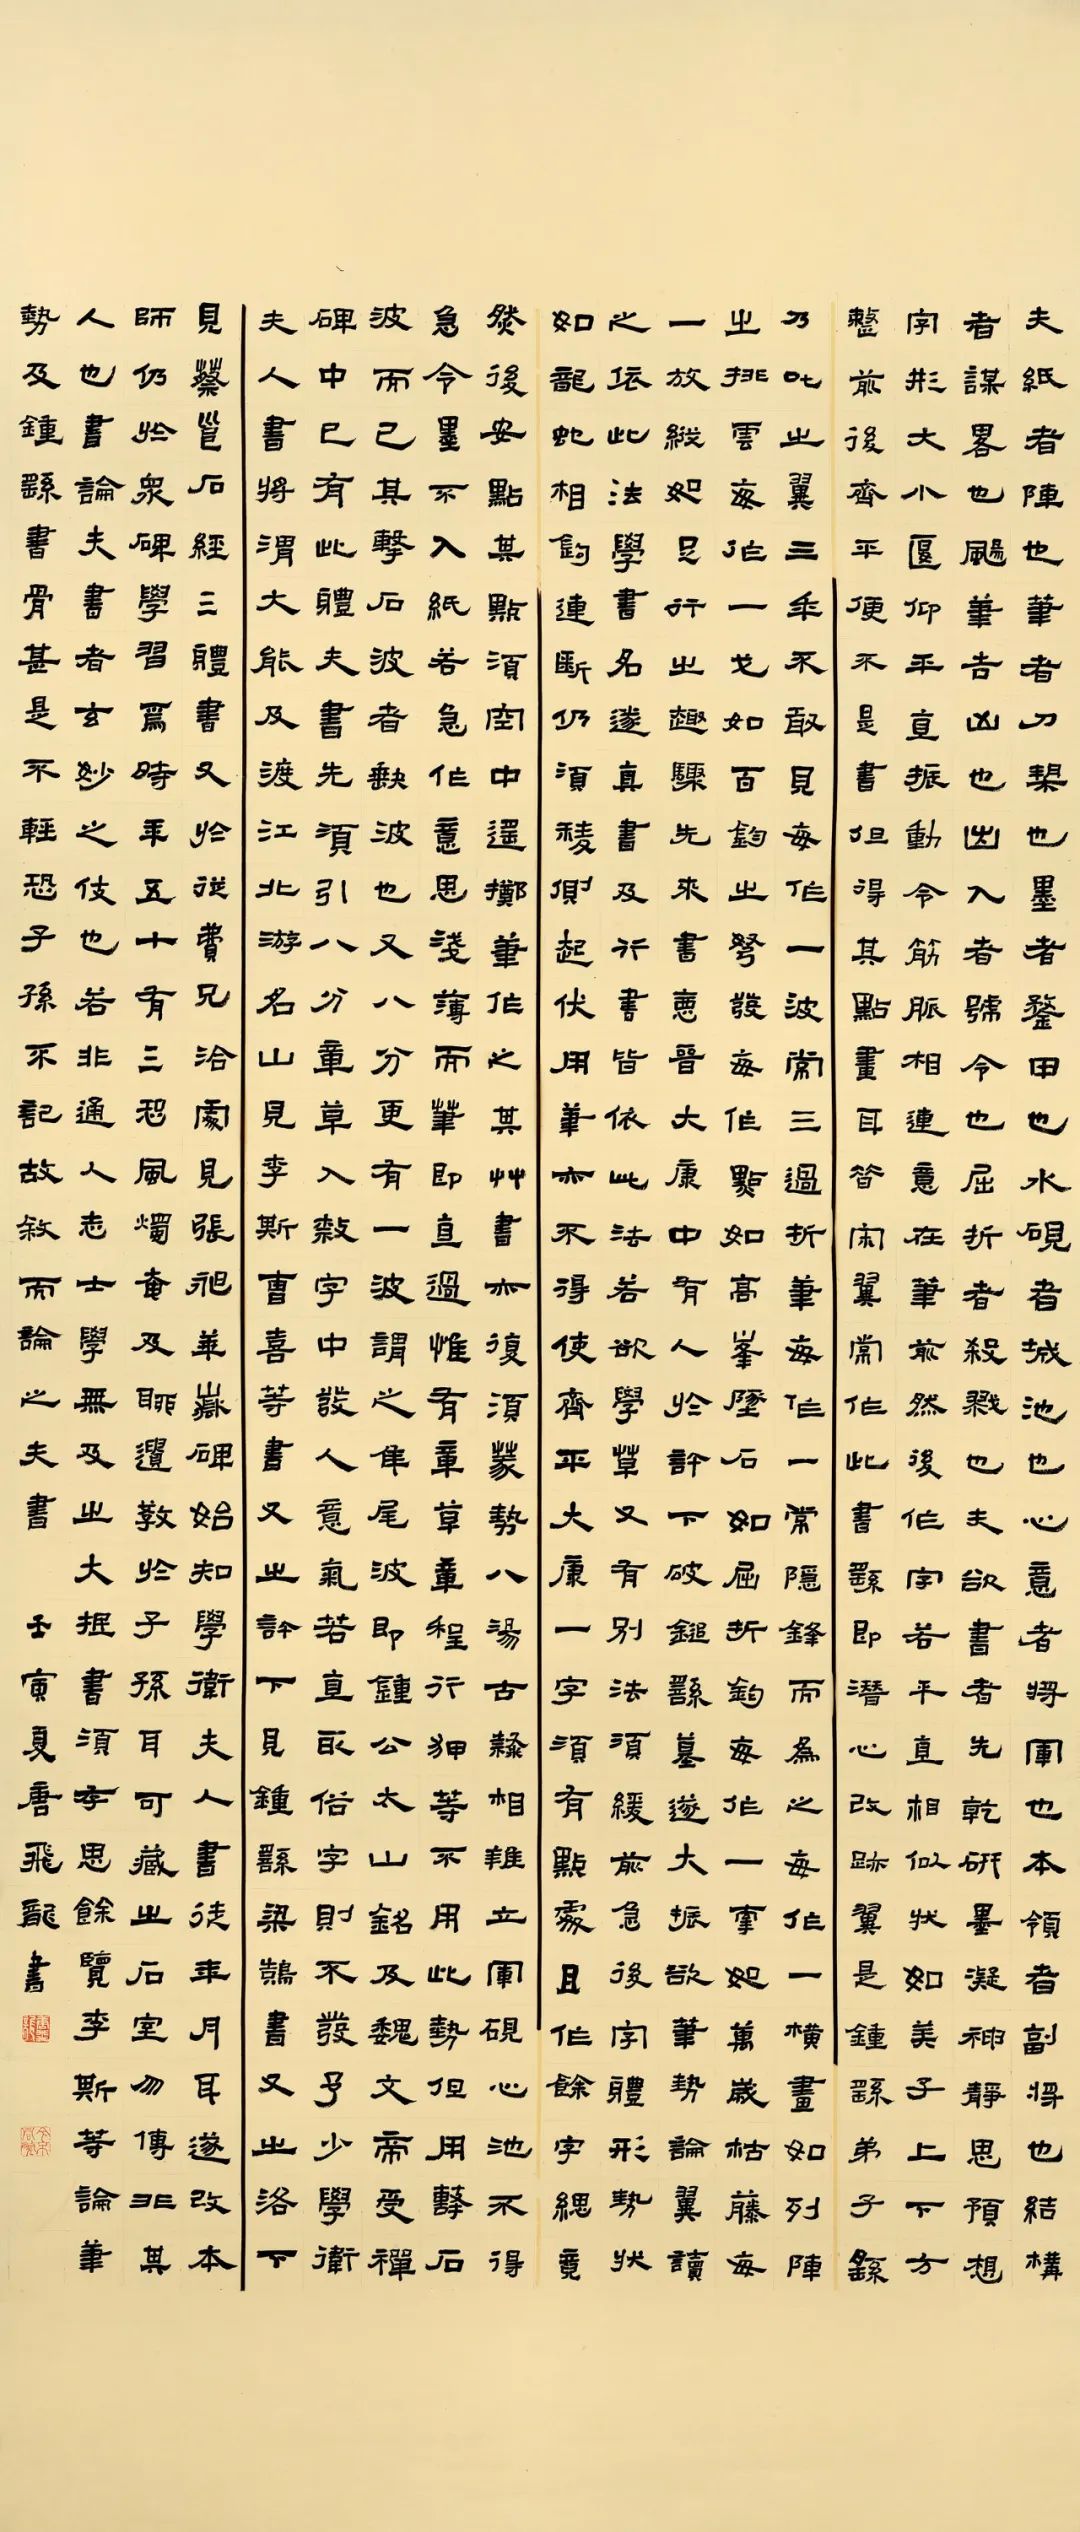 夫紙者陣也筆者刀槊也墨者鍪甲也水硯者城池也心意者將軍也本領者副將也結構
者謀畧也颺筆吉凶也出入者號令也屈折者殺戮也夫欲書者先乾研墨凝神靜思預想
字形大小偃仰平直振動令筋脈相連意在筆前然後作字若平直相似狀如美子上下方
整前後齊平便不是書但得其點畫耳昔宋翼常作此書繇即潛心改跡翼是鍾繇弟子繇
乃叱之翼三年不敢見每作一波常三過折筆每作一常隱鋒而為之每作一橫畫如列陣
之排雲每作一戈如百鈞之弩發每作點如高峯墜石如屈折鈎每作一牽如萬歲枯藤每
一放縱如足行之趣驟先來書惡晉大康中有人於許下破鎚繇墓遂大振欲筆勢論翼讀
之依此法學書名遂真書及行書皆依此法若欲學草又有別法須緩前急後字體形勢狀
如龍蛇相鈎連斷仍須稜側起伏用筆亦不得使齊平大康一字須有點處且作餘字緫竟
然後安點其點須空中遥擲筆作之其艸書亦復須篆勢八湯古隸相雜立軍硯心池不得
急令墨不入紙若急作意思淺薄而筆即直過惟有章草章程行狎等不用此勢但用擊石
波而已其擊石波者缺波也又八分更有一波謂之隼尾波即鍾公太山銘及魏文帝受禪
碑中已有此體夫書先須引八分章草入隸字中發人意氣若直取俗字則不發予少學衛
夫人書將渭大能及渡江北游名山見李斯曹喜等書又之許下見鍾繇梁鵠書又之洛下
見蔡邕石經三體書又於從費兄洽處見張昶華嶽碑始知學衛夫人書徒年月耳遂改本
師仍於眾碑學習焉時年五十有三恐風燭奄及聊遺教於子孫耳可藏之石室勿傳非其
人也書論夫書者玄妙之伎也若非通人志士學無及之大抵書須存思餘覽李斯等論筆
勢及鍾繇書骨甚是不輕恐子孫不記故敘而論之夫書 壬寅夏唐飛龍書